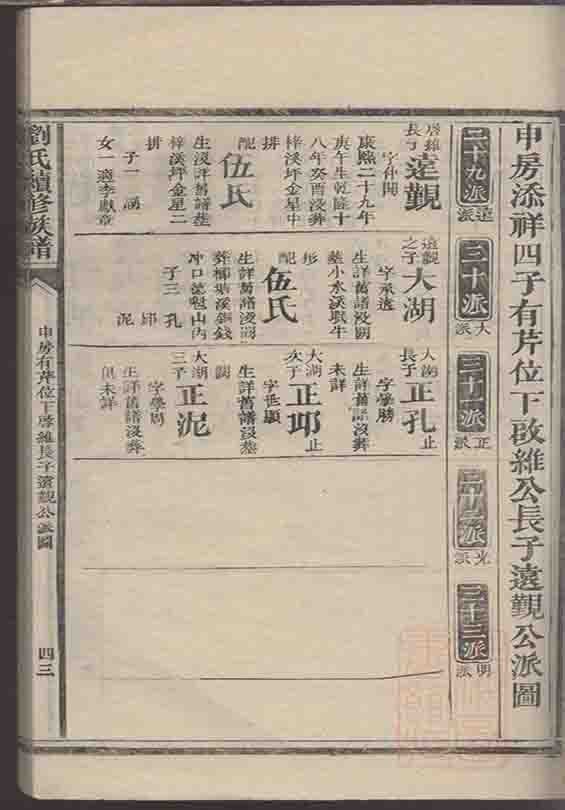 申房添祥四子有芹位下啟維公長子遠覲公派圖
二十九派
遠派
三十派
大派
三十一派
正派
三十二派
光派
三十三派
明派
啓維長子
遠覲
字仲開
康熙二十九年
庚午生乾隆十
八年癸酉没葬
梓溪坪金星中
排
配
伍氏
生没詳舊譜葬
梓溪坪金星二
排
子一
女一適李
遠覲之子
大湖
字永遠
生詳舊譜没闕
葬小水溪取牛
形
配
伍氏
生詳舊譜没闕
葬
冲口
山内
子三
孔
泥
大湖長子
正孔
止
字學勝
生詳舊譜没葬
未詳
大湖次子
正
止
字世顯
生詳舊譜没葬
闕
大湖三子
正泥
字學周
生詳舊譜没葬
俱未詳
劉氏續修族譜
申房有芹位下啟維長子遠覲公派圖
四三